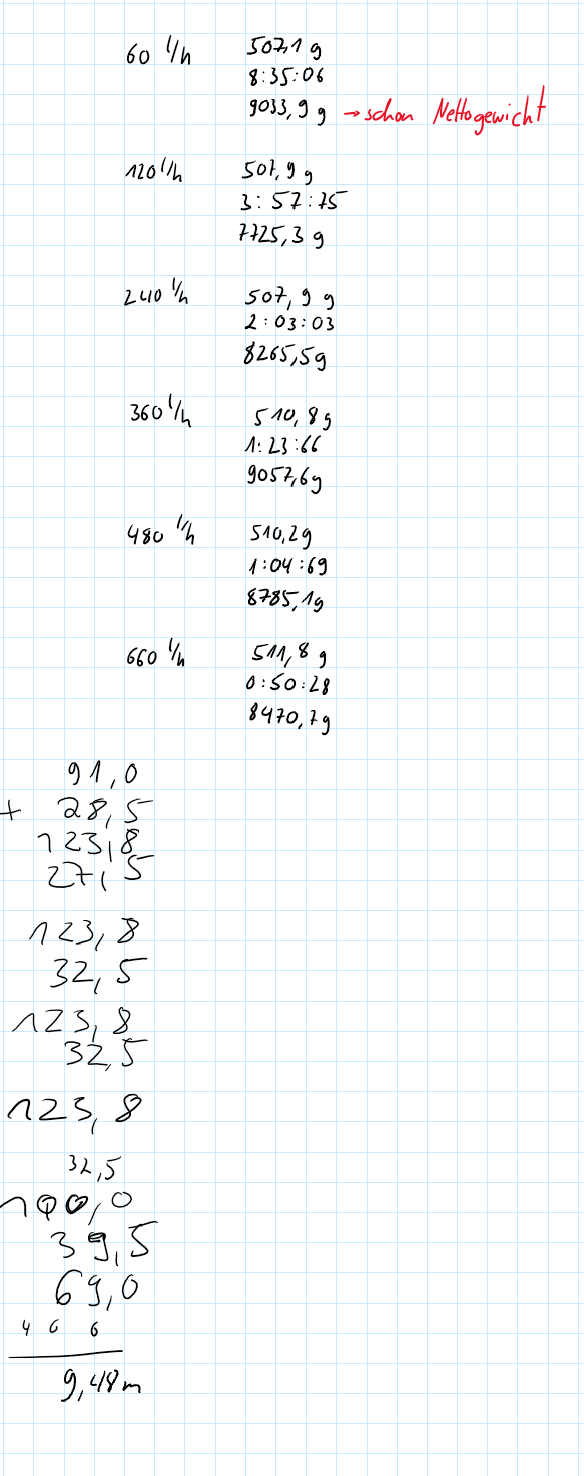 60 l/h 507,1 g
8:35:06
9033,9 g → schon Nettogewicht
120 l/h 507,9 g
3:57:75
7725,3 g
240 l/h 507,9 g
2:03:03
8265,5g
360 l/h 510,8g
1:23:66
9057,6g
480 l/h 510,2g
1:04:69
8785,1g
660 l/h 511,8 g
0:50:28
8470,7g
91,0
+ 28,5
123,8
27,5
123,8
32,5
123,8
32,5
123,8
32,5
100,0
39,5
69,0
4 6 6
9,48m